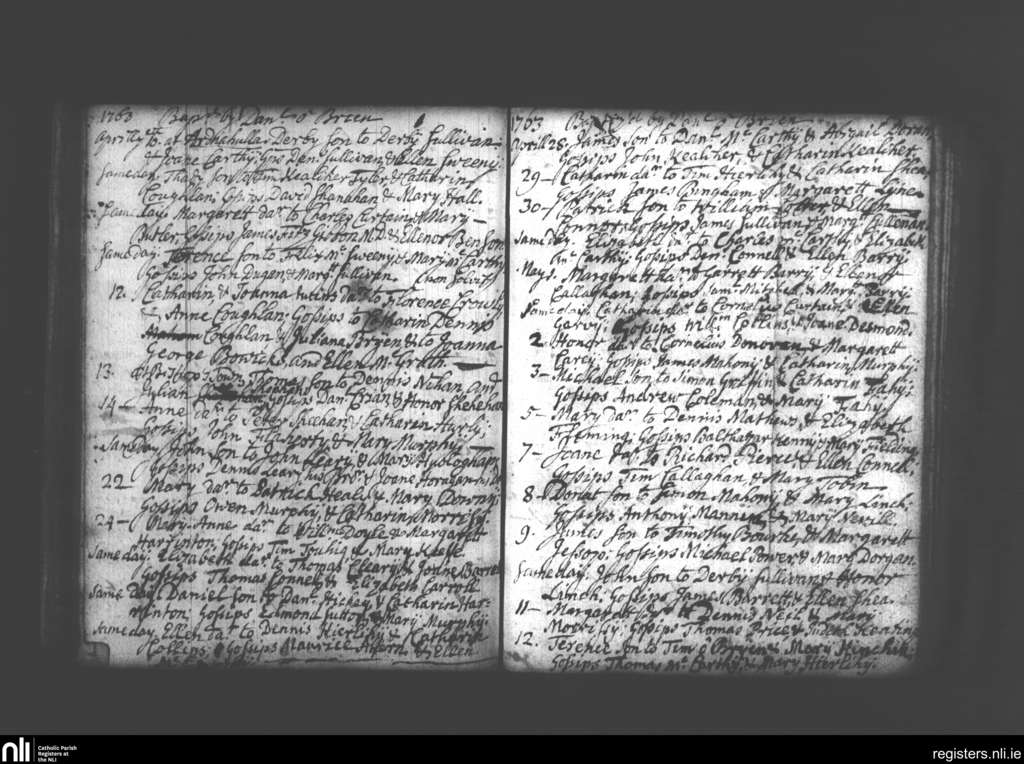 1763 Bapt. by Danl. O Brien
at Ardnahulla Derby son to Derby Sullivan
& Joane Carthy, Denis Sullivan & Ellen Sweeny
Same day. son to Kealiher Tyler & Catharin
Coughlan; Gossips David Shanahan & Mary Hall.
Same day. Margaret dar. to Charles & Mary
Butler, Gossips James Fitz Gibbon M.D. & Ellenor Benson
Same day. Terence son to Felix Mc Sweeny & Mary Mc Carthy
Gossips John Dugen & Marg. Sullivan.
12. Catharin & Joanna twins dar. to Florence Crowly
& Anne Coughlan; Gossips to Catharin Dennis
Coghlan & Juliana Bryen & to Joanna
George Bowicks and Ellen Mc Grath
13. Thomas son to Dennis Nihan and
Julian Gossips Danl. Brian & Honor Shehehan
14 Anne dar. to Peter Sheehan & Catharen Hurly;
Gossips John Flaherty & Mary Murphy
Same day John son to John Leary & Mary
Gossips Dennis Leary his & Joane
22 Mary dar. to Patrick Healy & Mary Downy
Gossips Owen Murphy & Catharin Morrissy.
24 Mary-Anne dar. to Willm. Doyle & Margarett
Harrinton; Gossips Tim Touhig & Mary Keefe
Same day. Elizabeth dar. to Thomas Cleary & Joane Barrett
Gossips Thomas Connell & Elizabeth Carroll
Same Day Daniel son to Danl. Hickey & Catharin Har-
rinton; Gossips Edmond Sutton & Mary Murphy:
Same day Ellen dar. to Dennis Hierlihy & Catharin
Collins; Gossips Maurice Ahern, & Ellen
1763 Bapt. by Danl. O Brien
April 28. James son to Danl. Mc Carthy & Abigail Doran
Gossips John Kealiher, & Catharin Kealiher
29 Catharin dar. to Tim Hierlihy & Catherin Shea,
Gossips James Bingham & Margarett Lyne
30 Patrick son to William Cotter & Ellen
Connor; Gossips James Sullivan & Margt. Cullenan
Same day. Elizabeth dar. to Charles Mc Carthy & Elizabeth
Mc Carthy; Gossips Den. Connell & Ellen Barry.
May 1. Margarett dar. to Garrett Barry & Elenor
Callaghan; Gossips Saml. Mitchel & Mary Barry.
Same day. Catharin dar. to Cornelius Curtain & Ellen
Garvy; Gossips Willm. Collins & Joane Desmond.
2. Honor dar. to Cornelius Donovan & Margarett
Carey; Gossips James Mahony & Catharin Murphy;
3 Michael son to Simon Griffin & Catharin Fahy;
Gossips Andrew Coleman, & Mary Fahy
5 Mary dar. to Dennis Mathews & Elizabeth
Fleming; Gossips Balthazar Kenny & Mary Fielding
7 Joane dar. to Richard Pierce & Ellen Connell
Gossips Tim Callaghan, & Mary Tobin
8 Donat son to Simon Mahony & Mary Linch,
Gossips Anthony & Mary
9. James son to Timothy Bourke & Margarett
Jessop; Gossips Michael Power & Mary Dorgan
Same day. John son to Derby Sullivan & Honor
Linch; Gossips James Barrett & Ellen Shea.
11 Margarett dar. to Dennis Neil & Mary
Morrissy; Gossips Thomas Price & Judith Keating
12. Terence son to Tim O Bryen & Mary Hinchin
Gossips Thomas Mc Carthy & Mary Hierlihy.
nli
Catholic Parish
Registers at
the NLI
registers.nli.ie